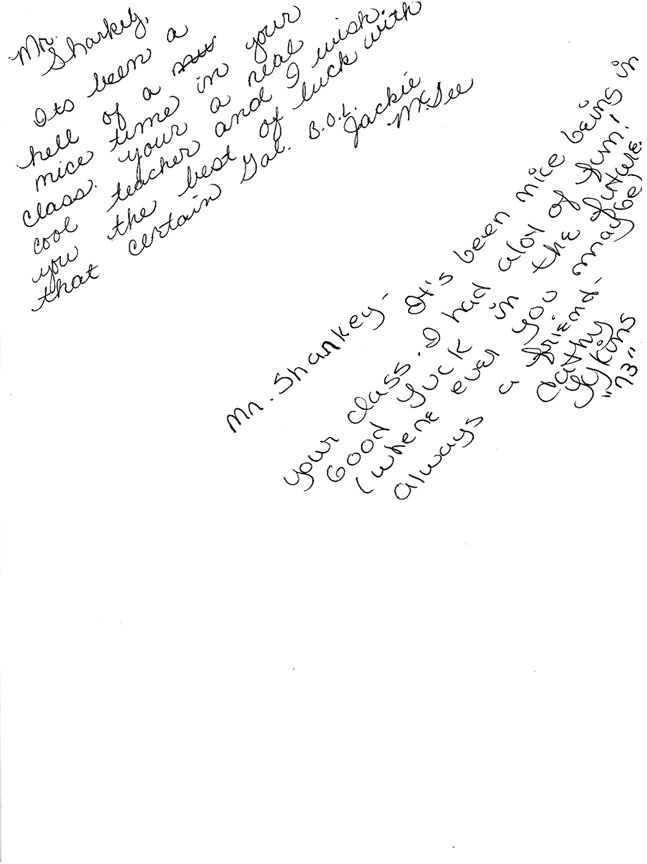 Mr.
Sharkey,
Its been a
hell of a
nice time in your
class. your a real
cool teacher and I wish
you the best of luck with
that certain Gal. B.O.L.
Jackie
McGee
Mr. Sharkey- It's been nice being in
your class. I had alot of fun!
Good luck in the future.
(where ever you maybe)
always a friend-
Cathy
Lykins
"73"